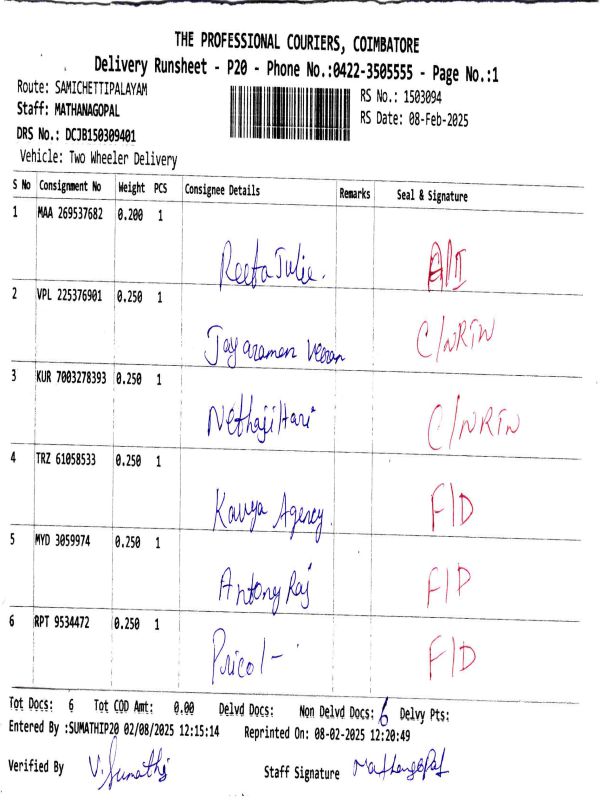 THE PROFESSIONAL COURIERS, COIMBATORE
Delivery Runsheet - P20 - Phone No.:0422-3505555 - Page No.:1
Route: SAMICHETTIPALAYAM
RS No.: 1503094
Staff: MATHANAGOPAL
RS Date: 08-Feb-2025
DRS No.: DCJB150309401
Vehicle: Two Wheeler Delivery
S No Consignment No Weight PCS Consignee Details Remarks Seal & Signature
1 MAA 269537682 0.200 1
Reeta Julie.
2 VPL 225376901 0.250 1
Jayaraman Veeran C/NRTN
3 KUR 7003278393 0.250 1
Nethaji Hari C/NRTN
4 TRZ 61058533 0.250 1
Kavya Agency. F/D
5 MYD 3059974 0.250 1
Antony Raj F/D
6 RPT 9534472 0.250 1
Pricol - F/D
Tot Docs: 6 Tot COD Amt: 0.00 Delvd Docs: Non Delvd Docs: 6 Delvy Pts:
Entered By :SUMATHIP20 02/08/2025 12:15:14 Reprinted On: 08-02-2025 12:20:49
Verified By V. Sumathi Staff Signature Mathangopal